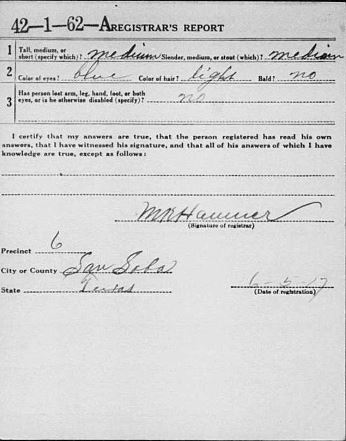 42-1-62-A REGISTRAR'S REPORT
1 Tall, medium, or short (specify which)? medium Slender, medium, or stout (which)? medium
2 Color of eyes? blue Color of hair? light Bald? no
3 Has person lost arm, leg, hand, foot, or both eyes, or is he otherwise disabled (specify)? no
I certify that my answers are true, that the person registered has read his own
answers, that I have witnessed his signature, and that all of his answers of which I have
knowledge are true, except as follows:
(Signature of registrar)
Precinct 6
City or County San Saba
State Texas
6-5-17
(Date of registration)